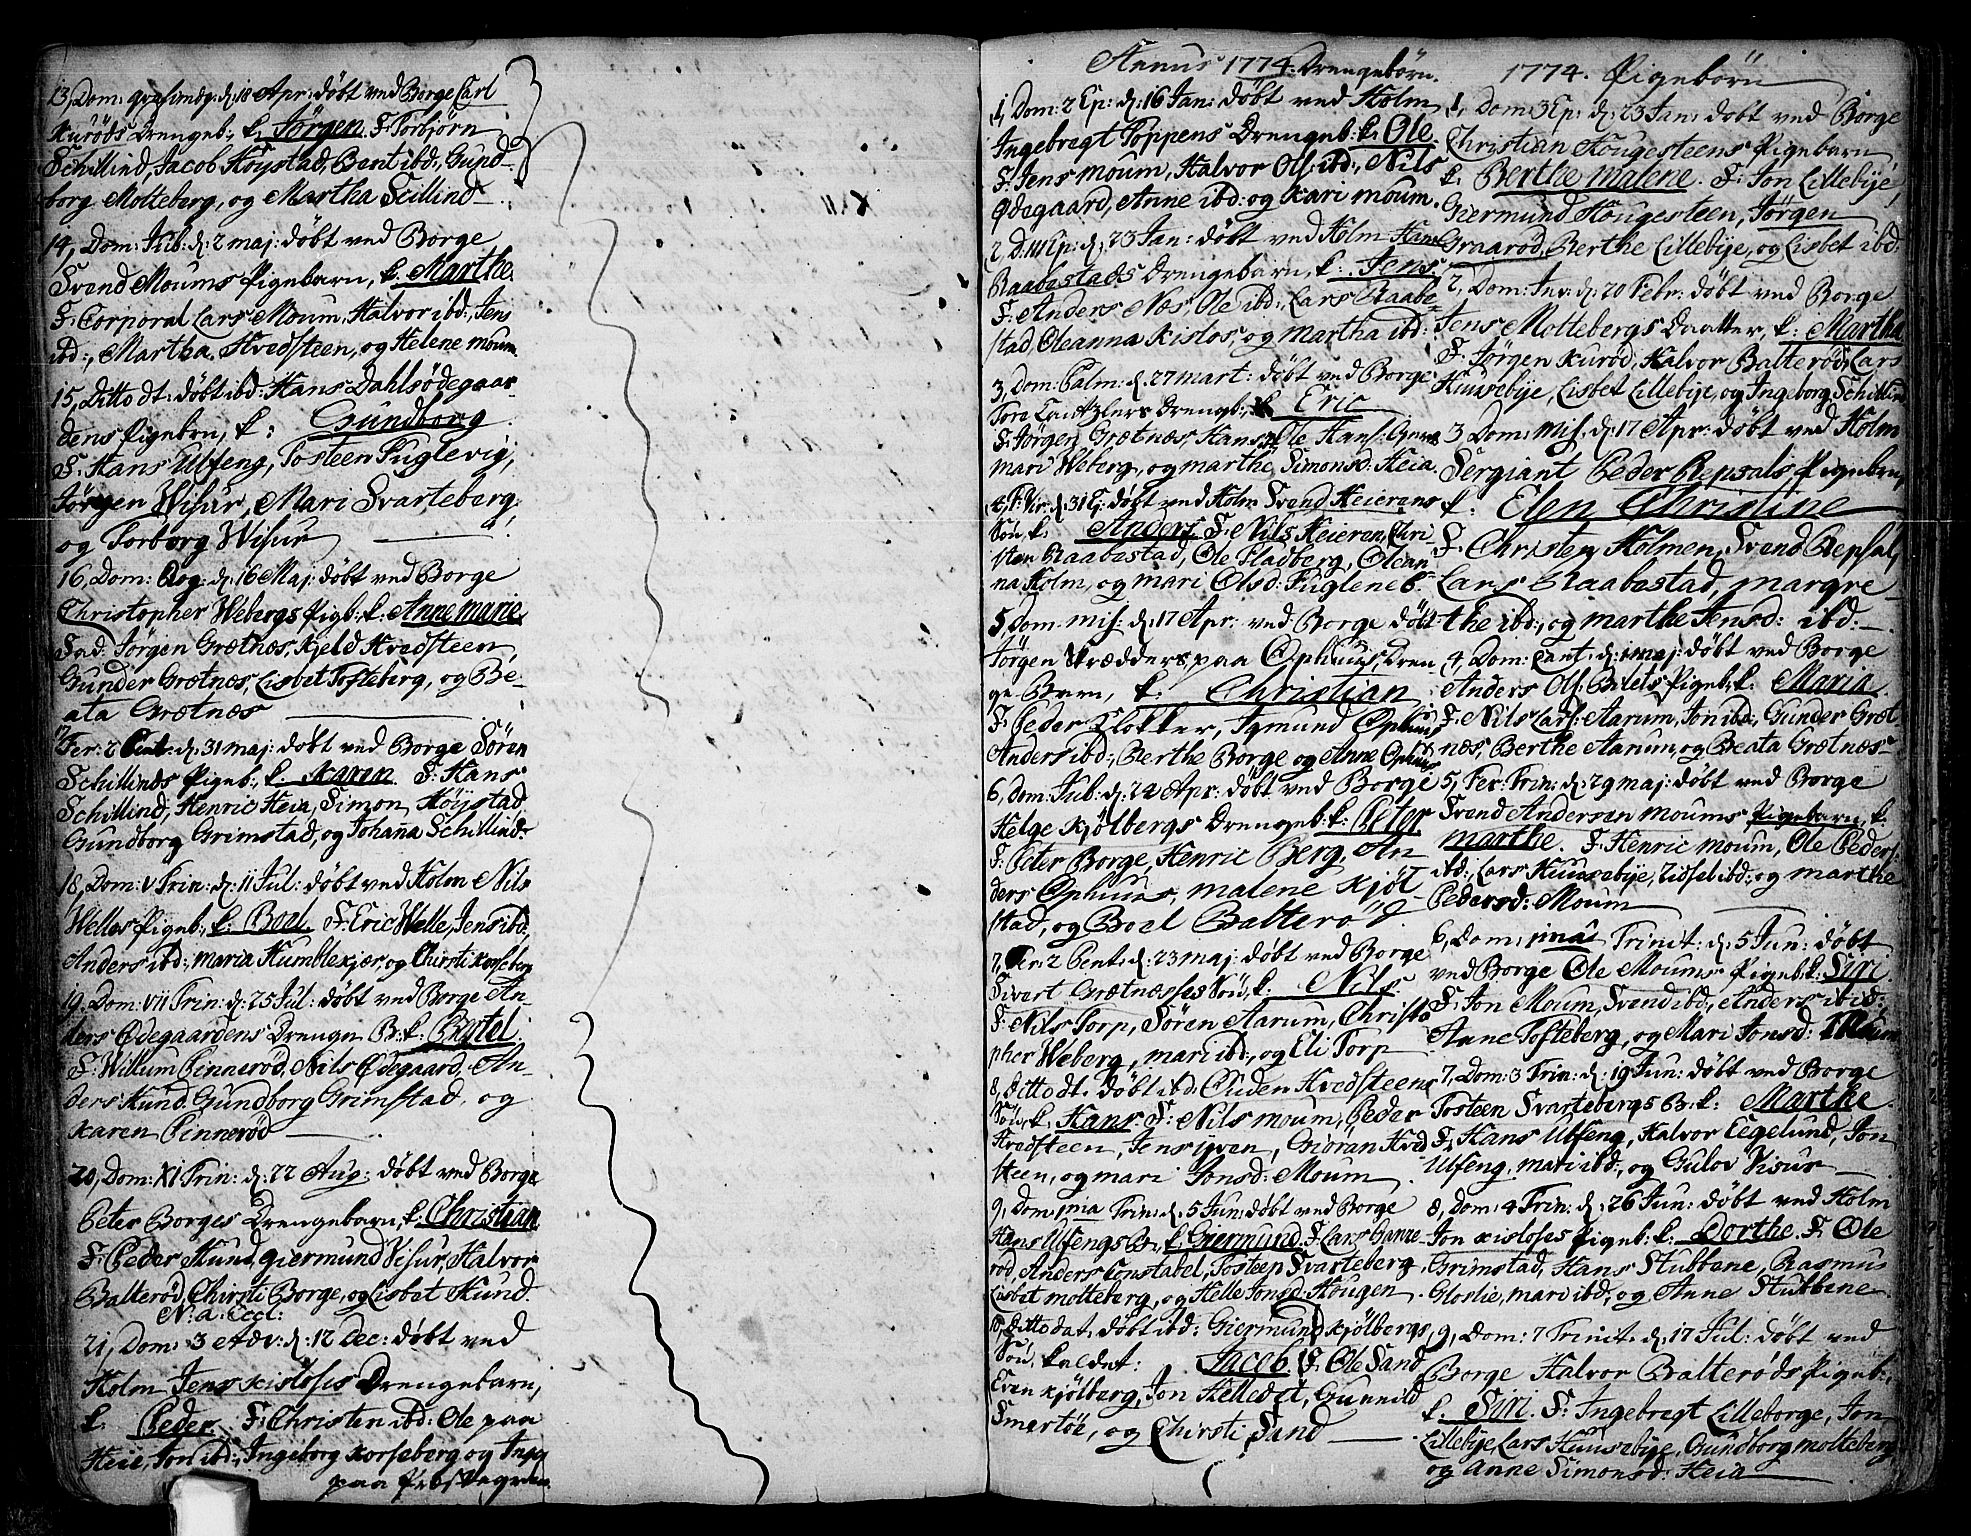 13, Dom: qvasimdg: d: 18 Apr: døbt ved Borge Carl
Kurøds Drengeb:, k. Jørgen F. Torbjørn
Schillind, Jacob Høystad, Bent ibd:, Gund-
borg Motteberg, og Martha Scillind
14, Dom: Jub: d: 2 maj: døbt ved Borge
Svend Moums Pigebarn, k. Marthe.
F. Corporal Lars Moum, Halvor ibd:, Jens
ibd:, Martha Hvedsteen, og Helene moum.
15, Ditto dt: døbt ibd: Hans Dahlsødegaar-
dens Pigebrn, k: Gundborg
F. Hans Ulfeng, Tosteen Fuglevig,
Jørgen Wisur, Mari Svarteberg,
og Torborg Wisur
16, Dom: Rog: d: 16 Maj: døbt ved Borge
Christopher Webergs Pigb: k. Anne marie
Fad: Jørgen Grætnæs, Kjeld Hvedsteen,
Gunder Grætnæs, Lisbet Tofteberg, og Be-
ata Grætnæs
17, Fer: 2 Pent: d: 31 maj: døbt ved Borge Søren
Schillinds Pigeb:, k. Karen F. Hans
Schillind, Henric Heia, Simon Høystad,
Gundborg Grimstad, og Johana Schillind:
18, Dom: V Trin: d: 11 Jul: døbt ved Holm Nils
Welles Pigeb:, k. Boel. F. Eric Welle, Jens ibd:,
Anders ibd:, maria Humblekjær, og Chirsti Korseberg
19, Dom: VII Trin: d: 25 Jul: døbt ved Borge An-
ders Ødegaardens Drenge B: k. Bertel.
F. Willum Pinnerød, Nils Ødegaard, An-
ders Hund, Gundborg Grimstad, og
Karen Pinnerød
20, Dom: XI Trin: d: 22 Aug: døbt ved Borge
Peter Borges Drengebarn, k. Christian
F. Peder Hund, giermund Visur, Halvor
Balterød, Chirsti Borge, og Lisbet Hund.
N: a: Eccl:
21, Dom: 3 Adv: d: 12 Dec: døbt ved
Holm Jens Kisloses Drengebarn,
k. Peder F. Christen ibd: Ole paa
Heie, Jon ibd:, Ingeborg Korseberg og Inger
paa
Annus 1774. Drengebørn.
1, Dom: 2 Ep: d: 16 Jan: døbt ved Holm
Ingebregt Toppens Drengeb: k. Ole
F. Jens moum, Halvor Ols: ibd:, Nils
Ødegaard, Anne ibd: og Kari moum.
2, D: III Ep: d: 23 Jan: døbt ved Holm Hans
Raabestads Drengebarn, k. Jens.
F. Anders Næs, Ole ibd:, Lars Raabe-
stad, Oleanna Kislos, og Martha ibd:
3, Dom: Palm: d: 27 mart: døbt ved Borge
Tore Drengb:, k. Eric
F. Jørgen Grætnæs, Hans ibd:, Ole Hans:
mari Weberg, og marthe Simonsd: Heia.
4, d: 31 døbt ved Holm Svend Heierens
Søn, k. Anders F. Nils Heieren, Chri-
sten Raabestad, Ole Fladberg, Olean-
na Holm, og mari Olsd:
5, Dom: mis: d: 17 Apr: ved Borge døbt
Jørgen Skrædders paa Ophuus Dren-
ge-Barn, k: Christian
F. Peder Klokker, Sgmund Ophuus
Anders ibd:, Berthe Borge og Anne Ophuus
6, Dom: Jub: d: 24 Apr: døbt ved Borge
Helge Kjølbergs Drengeb: k: Peter
F. Peter Borge, Henric Berg, An-
ders Ophuus, malene Kjøl-
stad, og Boel Balterød.
7, Fer: 2 Pent: d: 23 maj: døbt ved Borge
Sivert Grætnæsses Søn, k: Nils
F. Nils Torp, Søren Aarum, Christo-
pher Weberg, mari ibd:, og Eli Torp
8, Ditto dt. døbt ibd: Auden Hvedsteens
Søn, k. Hans F. Nils moum, Peder
Hvedsteen, Jens ibd:, Giøran Hved-
steen, og mari Jonsd: Moum
9, Dom: 1ma Trin: d: 5 Jun: døbt ved Borge
Hans Ulfengs B:, k. Giermund, F. Lars Hanse-
rød, Anders Constabel, Tosteen Svarteberg,
Lisbet motteberg, og Helle Jonsd: Hougen
10, Ditto dat. døbt ibd: Giermund Kjølbergs
Søn, kaldet: Jacob F. Ole Sand
Even Kjølberg, Jon Gunnild
Smertøe, og Chirsti Sand
1774. Pigebørn
1, Dom: 3 Ep: d: 23 Jan: døbt ved Borge
Christian Hougesteens Pigebarn
k. Berthe malene. F. Jon Lillebye,
Giermund Hougesteen, Jørgen
Graarød, Berthe Lillebye, og Lisbet ibd:
2, Dom: Inv: d: 20 Febr: døbt ved Borge
Jens Mottebergs Daatter, k: Martha
F. Jørgen Kurød, Halvor Balterød, Lars
Huusebye, Lisbet Lillebye, og Ingeborg Schillind
3 Dom: Mis: d: 17 Apr: døbt ved Holm
Sergiant Peder Repsals Pigebrn,
k. Elen Christine
F. Christen Holmen, Svend Repsal,
Lars Raabestad, margre-
the ibd:, og marthe Jensd: ibd:
4, Dom: Cant: d: 1 maj: døbt ved Borge
Anders Ols: Bilets Pigeb: k. Maria
F. Nils Lars: Aarum, Jon ibd:, Gunder Græt-
næs, Berthe Aarum, og Beata Grætnæs
5, Fer: Trin: d: 29 maj: døbt ved Borge
Svend Andersen moums Pigebarn, k.
marthe. F. Henric moum, Ole Peders:
ibd:, Lars Huusebye, Zidsel ibd: og marthe
Pedersd: Moum
6, Dom: 1ma Trinit: d: 5 Jun: døbt
ved Borge Ole Moums Pigeb: k: Siri
F. Jon Moum, Svend ibd:, Anders ibid:
Anne Tofteberg, og Mari Jonsd: Moum
7, Dom: 3 Trin: d: 19 Jun: døbt ved Borge
Tosteen Svartebergs B: k: Marthe
F. Hans Ulfeng, Halvor Eegelund, Jon
Ulfeng, mari ibd:, og Gulov Visur
8, Dom: 4 Trin: d: 26 Jun: døbt ved Holm
Jon Kisloses Pigeb: k: Dorthe. F. Ole
Grimstad, Hans Stubbene, Rasmus
Gloslie, mari ibd:, og Anne Stubbene
9, Dom: 7 Trinit: d: 17 Jul: døbt ved
Borge Halvor Balterøds Pigeb:,
k. Siri. F. Ingebregt Lilleborge, Jon
Lillebye, Lars Huusebye, Gundborg motteberg
og Anne Simonsd: Heia